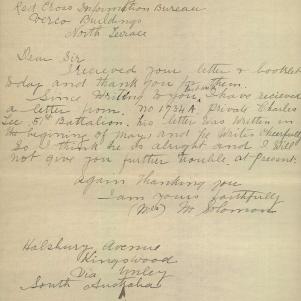 Red Cross Information Bureau
Verco Buildings
North Terrace
Dear Sir
I recieved your letter & booklet
today and thank you for them.
Since writing to you I have recieved
a letter from No 1734A Private Charles
Lee 51st Battalion. his letter was written in
the begining of may, and he writes cheerfully
So I think he is alright and I will
not give you further trouble at present.
Again Thanking you
I am yours faithfully
(Mrs) M Solomon
Halsbury Avenue
Kingswood
Via Unley
South Australia